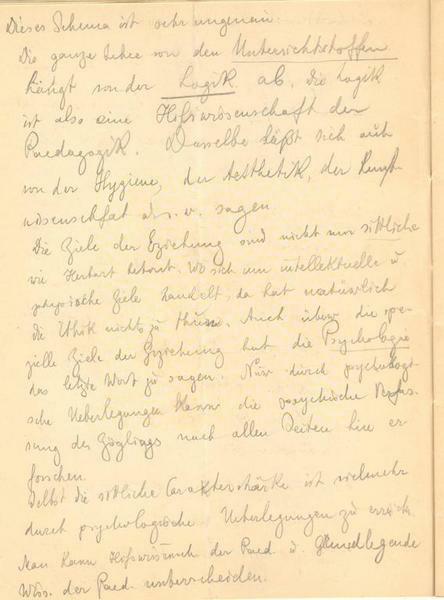 Dieses Schema ist sehr ungenau.
Die ganze Lehre von den Unterrichtsstoffen
hängt von der Logik ab, die Logik
ist also eine Hilfswissenschaft der
Paedagogik. Dasselbe läßt sich auch
von der Hygiene, der Aesthetik, der Kunst
wissenschaft u. s. w. sagen.
Die Ziele der Erziehung sind nicht nur sittliche
wie Herbart betont. Wo sich um intellektuelle u
physische Ziele handelt, da hat natürlich
die Ethik nichts zu thun. Auch über die spe-
zielle Ziele der Erziehung hat die Psychologie
das letzte Wort zu sagen. Nur durch psychologi-
sche Ueberlegungen kann die psychische Verfas-
sung des Zöglings nach allen Seiten hin er
forschen.
Selbst die sittliche Carakterstärke ist vielmehr
durch psychologische Ueberlegungen zu erreich.
Man kann Hilfswissensch der Paed. u. grundlegende
Wiss. der Paed. unterscheiden.